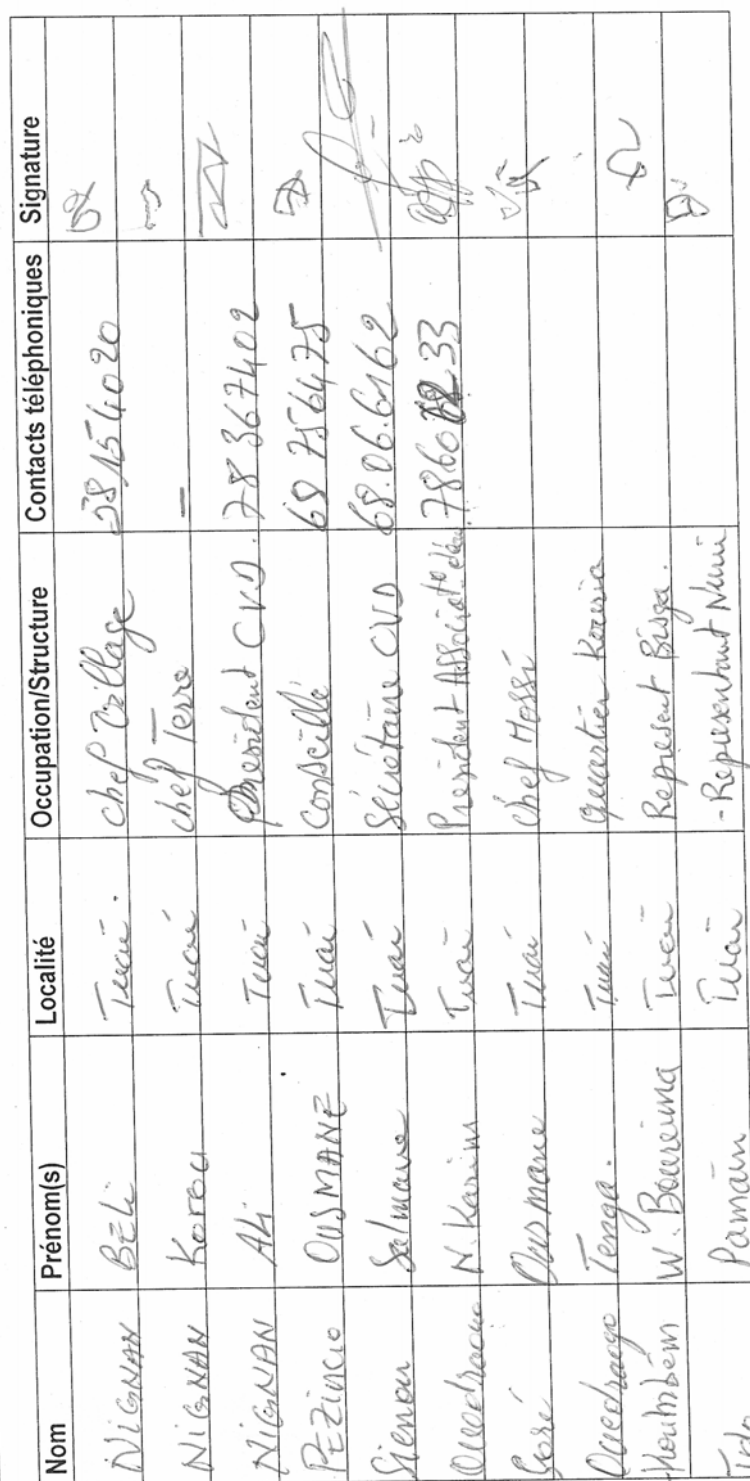 Nom Prénom(s) Localité Occupation/Structure Contacts téléphoniques Signature
NIGNAN BELI Tuai. chef Village 58154020
NIGNAN Korou Tuai chef Terre —
NIGNAN Ali Tuai President CVD. 78367402
PEZINCIO OUSMANE Tuai Conseillé 68756475
Sienou Salmane Tuai Sécrétaire CVD 68.06.6162
Ouedraogo N. Karim Tuai President Associat° 33
Ousmane Tuai Chef Mossi
Ouedraogo Tenga. Tuai quartier
Koumbèm W. Boureima Tuai Represent Bisga.
Pamam Tuai - Representant Nuni